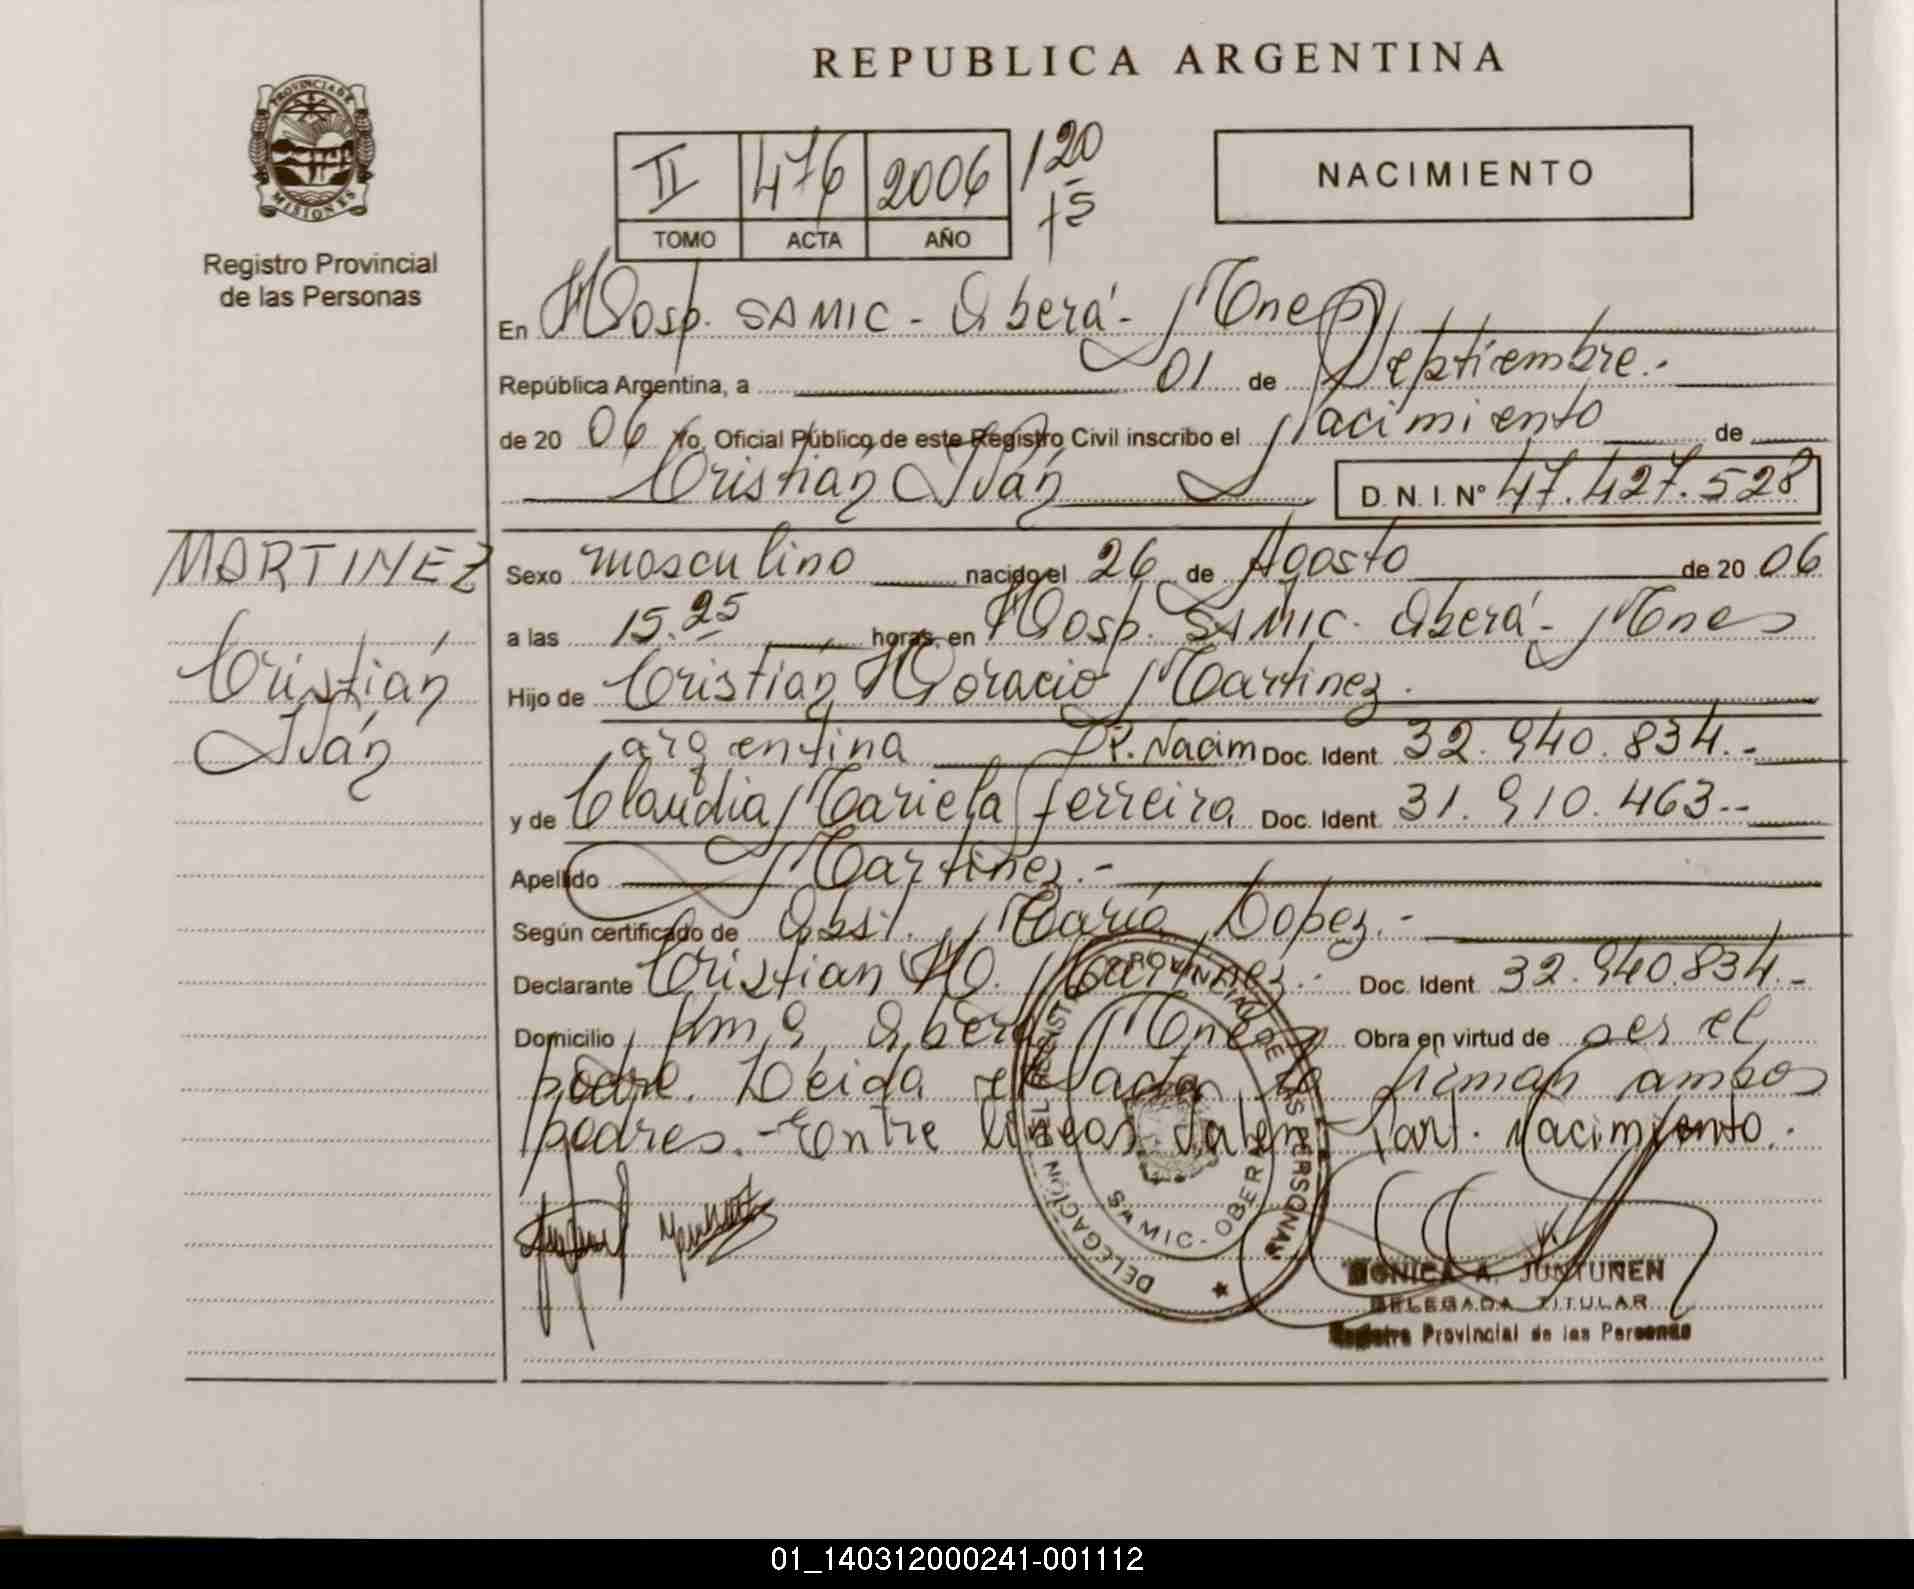 REPUBLICA ARGENTINA
PROVINCIA DE MISIONES
Registro Provincial
de las Personas
II 476 2006 120
TOMO ACTA AÑO
NACIMIENTO
En Hosp. SAMIC - Oberá - Mnes
República Argentina, a 01 de Septiembre.-
de 20 06 Yo, Oficial Público de este Registro Civil inscribo el Nacimiento de
Cristián Iván D. N. I. Nº 47.427.528
MARTINEZ
Cristián
Iván
Sexo masculino nacido el 26 de Agosto de 20 06
a las 15.25 horas, en Hosp. SAMIC. Oberá - Mnes
Hijo de Cristián Horacio Martinez.
argentina P. Nacim Doc. Ident. 32.940.834.-
y de Claudia Mariela Ferreira Doc. Ident. 31.910.463.--
Apellido Martinez.-
Según certificado de Obst. María Lopez.-
Declarante Cristian H. Martinez. Doc. Ident. 32.940.834.-
Domicilio Km 9 Oberá Mnes Obra en virtud de ser el
padre. Leida el acta, la firman ambos
padres.- Entre líneas Valen Part. Nacimiento.-
DELEGACIÓN DEL REGISTRO PROVINCIAL DE LAS PERSONAS
SAMIC - OBERA
MONICA A. JUNTUNEN
DELEGADA TITULAR
Registro Provincial de las Personas
01_140312000241-001112